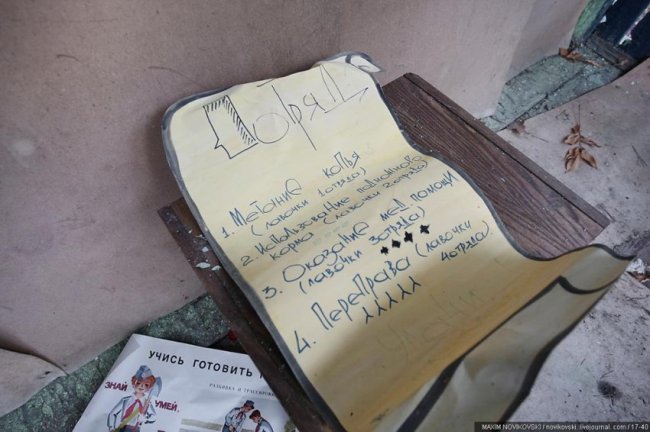 1 отряд
1. Метание копья
(лавочки 1отряда)
2. Использование подножного
корма (лавочки 2отряда)
3. Оказание мед. помощи
(лавочки 3отряда)
4. Переправа (лавочки
4отряда)
УЧИСЬ ГОТОВИТЬ
РАЗБИВКА И ТРАССИРОВКА
ЗНАЙ
УМЕЙ.
MAXIM NOVIKOVSKI / novikovski.livejournal.com / 17-40